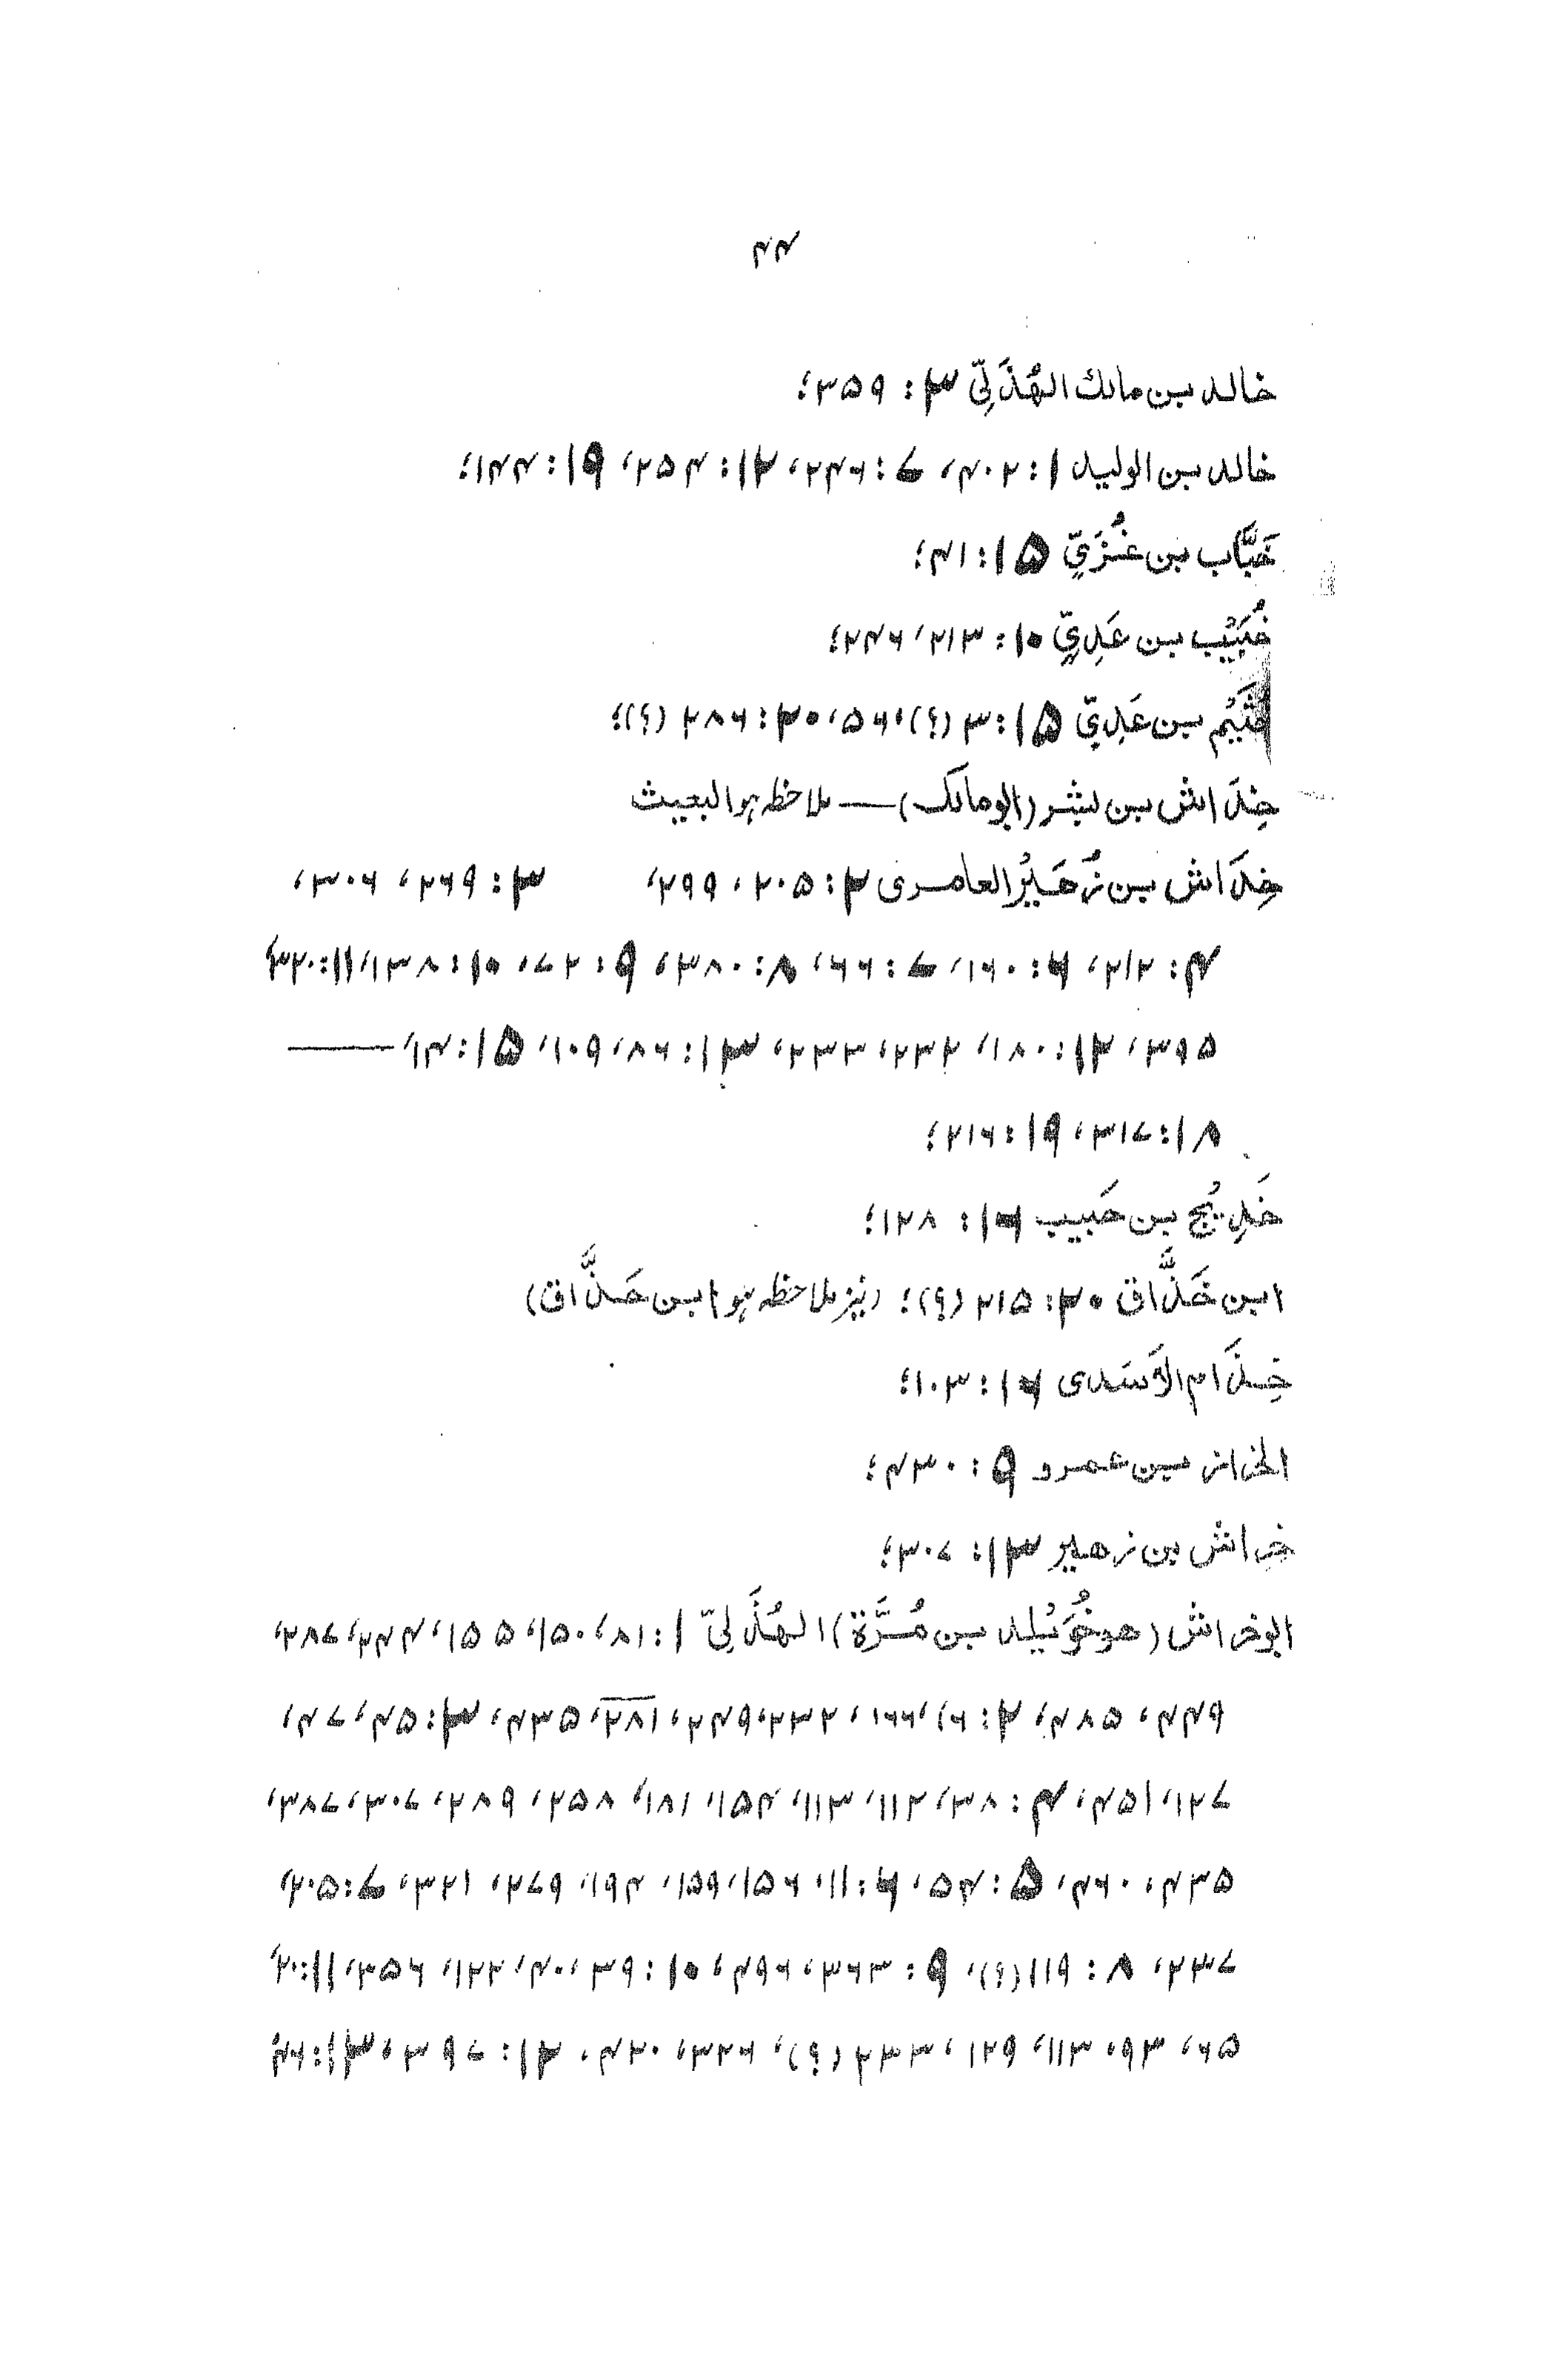 ۴۴
خالد بن مالك الهُذَلِيّ ۳: ۳۵۹؛
خالد بن الوليد ۱: ۴۰۲، ۷: ۲۴۶، ۱۲: ۲۵۴، ۱۹: ۱۴۴؛
خَبَّاب بن غُزَيّ ۱۵: ۴۱؛
خُبَيْب بن عَدِيّ ۱۰: ۲۱۳، ۲۴۶؛
خُثَيْم بن عَدِيّ ۱۵: ۳ (؟)، ۵۶، ۲۰: ۲۸۶ (؟)؛
خِدَاش بن بشر (ابو مالک) — ملاحظہ ہو البعیث
خِدَاش بن زُهَيْر العامری ۲: ۲۰۵، ۲۹۹، ۳: ۲۶۹، ۳۰۶،
۴: ۲۱۲، ۶: ۱۶۰، ۷: ۶۶، ۸: ۳۸۰، ۹: ۷۲، ۱۰: ۱۳۸، ۱۱: ۳۲۰،
۳۹۵، ۱۲: ۱۸۰، ۲۳۲، ۲۳۳، ۱۳: ۸۶، ۱۰۹، ۱۵: ۱۴، ———
۱۸: ۳۱۷، ۱۹: ۲۱۶؛
خَدِيْج بن حَبيب ۱۶: ۱۲۸؛
ابن خَذَّاق ۲۰: ۲۱۵ (؟)؛ (نیز ملاحظہ ہو ابن حَذَّاق)
خِذَام الأَسَدی ۱۶: ۱۰۳؛
الخراز بن عمرو ۹: ۴۳۰؛
خِراش بن زهير ۱۳: ۳۰۷؛
ابو خراش (هو خُوَيْلِد بن مُرَّة) الهُذَلِيّ ۱: ۸۱، ۱۵۰، ۱۵۵، ۲۴۴، ۲۸۷،
۴۴۹، ۴۸۵، ۲: ۱۶، ۱۶۶، ۲۳۲، ۲۴۹، ۲۸۱، ۴۳۵، ۳: ۴۵، ۴۷،
۱۲۷، ۴۵۱، ۴: ۳۸، ۱۱۲، ۱۱۳، ۱۵۴، ۱۸۱، ۲۵۸، ۲۸۹، ۳۰۷، ۳۸۷،
۴۳۵، ۴۶۰، ۵: ۵۴، ۶: ۱۱، ۱۵۶، ۱۵۹، ۱۹۴، ۲۷۹، ۳۲۱، ۷: ۲۰۵،
۲۳۷، ۸: ۱۱۹ (؟)، ۹: ۳۶۳، ۴۹۶، ۱۰: ۳۹، ۴۰، ۱۲۲، ۳۵۶، ۱۱: ۲۰،
۶۵، ۹۳، ۱۱۳، ۱۲۹، ۲۳۳ (؟)، ۳۲۶، ۴۲۰، ۱۲: ۳۹۷، ۱۳: ۴۶،